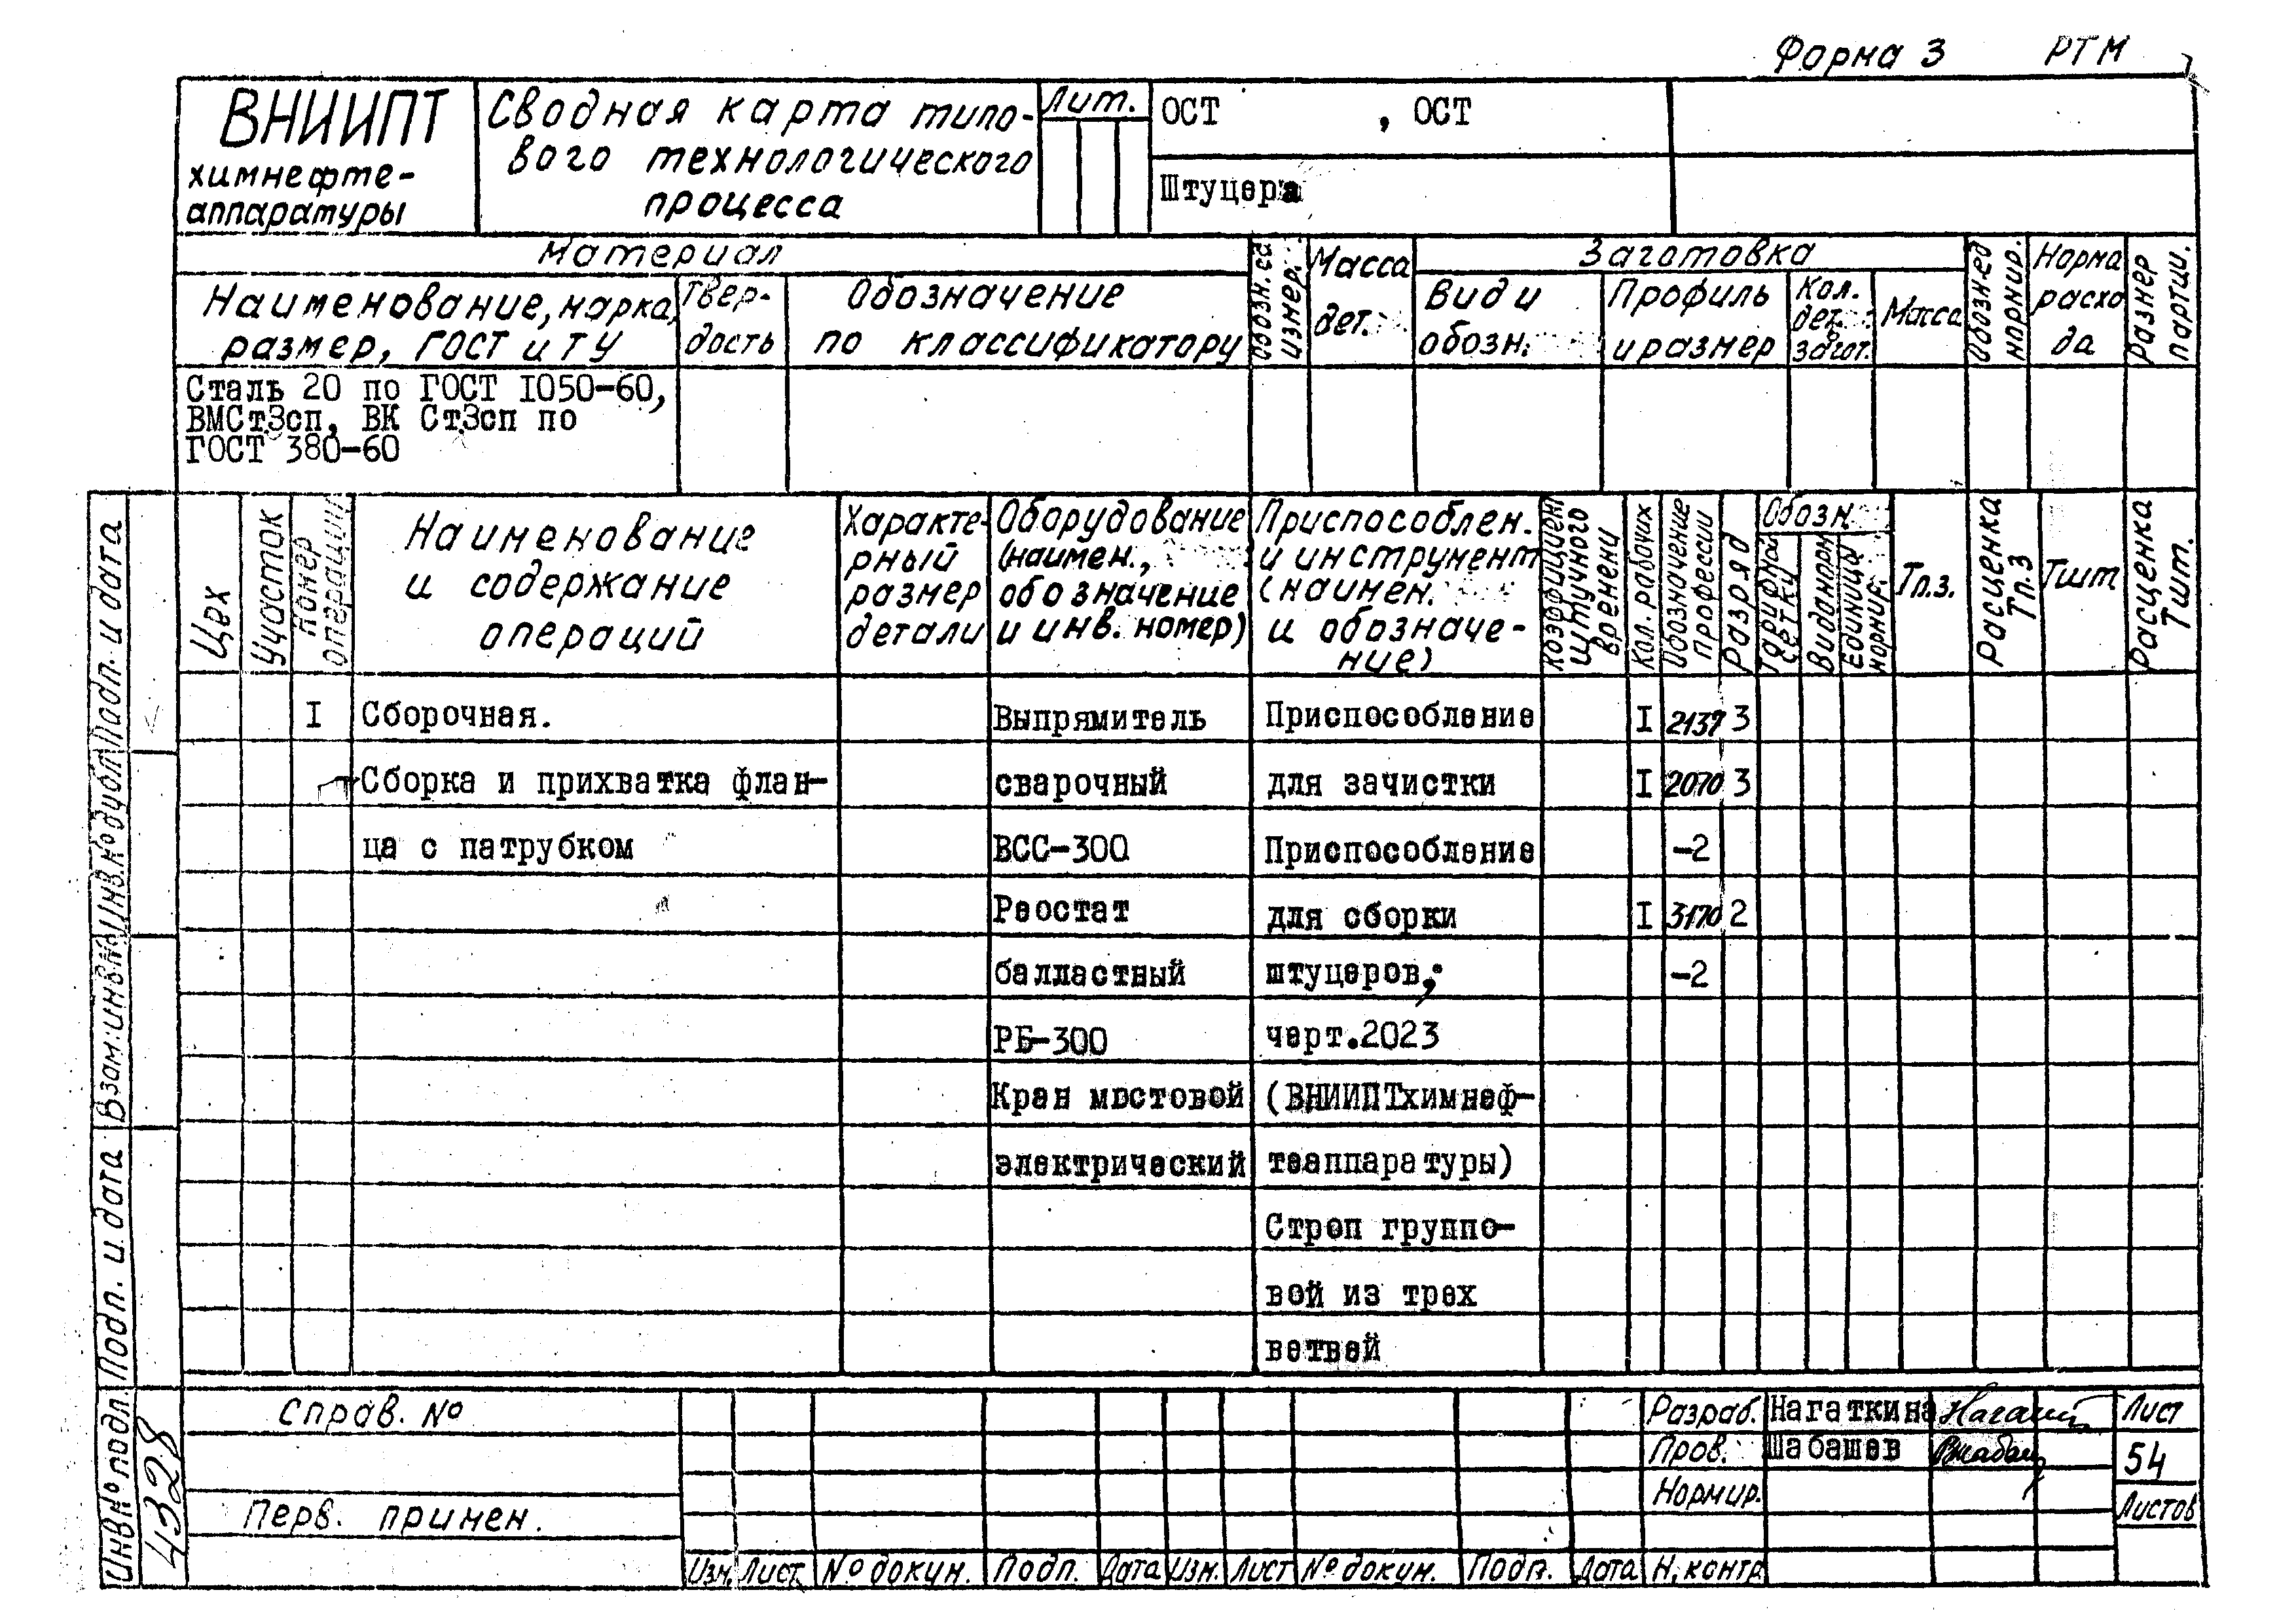 Форма 3 РТМ
ВНИИПТ
химнефте-
аппаратуры
Сводная карта типо-
вого технологического
процесса
Лит.
ОСТ , ОСТ
Штуцера
Материал
Наименование, марка,
размер, ГОСТ и ТУ
Твер-
дость
Обозначение
по классификатору
Обозн. ед
измер.
Масса
дет.
Заготовка
Вид и
обозн.
Профиль
и размер
Кол.
дет.
загот.
Масса
Обозн. ед
нормир.
Норма
расхо
да
Размер
партии.
Сталь 20 по ГОСТ I050-60,
ВМСт3сп, ВК Ст3сп по
ГОСТ 380-60
Цех
Участок
Номер
операции
Наименование
и содержание
операций
Характе-
рный
размер
детали
Оборудование
(наимен.,
обозначение
и инв. номер)
Приспособлен.
и инструмент
(наимен.
и обозначе-
ние)
Коэффициент
штучного
времени
Кол. рабочих
Обозначение
профессии
Разряд
Обозн.
тарифной
сетки
Вида норм
Единица
нормир.
Тп.з.
Расценка
Тп.з
Тшт.
Расценка
Тшт.
I Сборочная. Выпрямитель Приспособление I 2137 3
Сборка и прихватка флан- сварочный для зачистки I 2070 3
ца с патрубком ВСС-300 Приспособление -2
Реостат для сборки I 3170 2
балластный штуцеров; -2
РБ-300 черт.2023
Кран мостовой (ВНИИПТхимнеф-
электрический теаппаратуры)
Строп группо-
вой из трех
ветвей
Подп. и дата
Инв.№ дубл.
Взам.инв.№
Подп. и дата
Инв№ подл.
4328
Справ. №
Перв. примен.
Разраб. Нагаткина
Пров. Шабашев
Нормир.
Лист
54
Листов
Изм. Лист № докум. Подп. Дата Изм. Лист № докум. Подп. Дата Н. контр